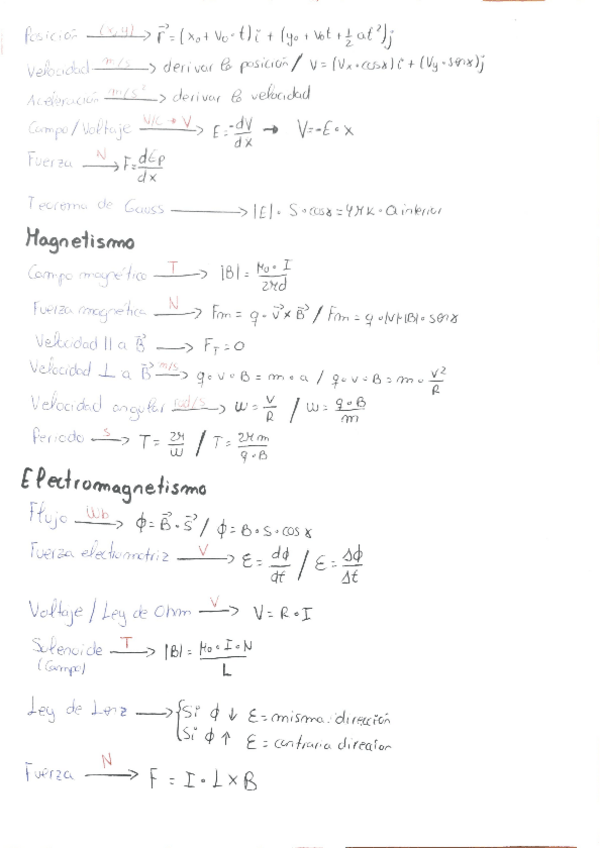 Posición (x,y) → r⃗ = (x₀ + V₀ · t) i + (y₀ + V₀t + ½ at²) j
Velocidad m/s → derivar la posición / V = (Vx · cosα) i + (Vy · senα) j
Aceleración m/s² → derivar la velocidad
Campo/Voltaje V/C → V → E = -dV/dx → V = -E · x
Fuerza N → F = dEp/dx
Teorema de Gauss → |E| · S · cosα = 4πk · Q interior
Magnetismo
Campo magnético T → |B| = μ₀ · I / 2πd
Fuerza magnética N → Fm = q · v⃗ × B⃗ / Fm = q · |v| · |B| · senα
Velocidad || a B⃗ → F_T = 0
Velocidad ⊥ a B⃗ m/s → q · v · B = m · a / q · v · B = m · v²/R
Velocidad angular rad/s → ω = v/R / ω = q · B / m
Periodo s → T = 2π/ω / T = 2πm / q · B
Electromagnetismo
Flujo Wb → ϕ = B⃗ · S⃗ / ϕ = B · S · cosα
Fuerza electromotriz V → ε = dϕ/dt / ε = Δϕ/Δt
Voltaje / Ley de Ohm V → V = R · I
Solenoide T → |B| = μ₀ · I · N / L
(Campo)
Ley de Lenz → { Si ϕ ↓ ε = misma dirección
Si ϕ ↑ ε = contraria direction
Fuerza N → F = I · L × B